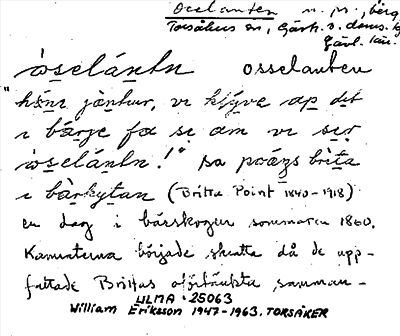 Ocelanten n. pr., berg
Torsåkers sn, Gästr. ö. doms.
Gävl. län.
òselántn osselanten
"hö̀nı jàntur, vi klỳve ap det
ı bárje fa se am vi ser
òsələ́ntn!" sa poäŋs brìta
ı bàrkytan (Britta Point 1840-1918)
en dag i bärskogen sommaren 1860.
Kamraterna började skratta då de upp-
fattade Brittas oförtänkta samman-
ULMA 25063
William Eriksson 1947-1963. TORSÅKER